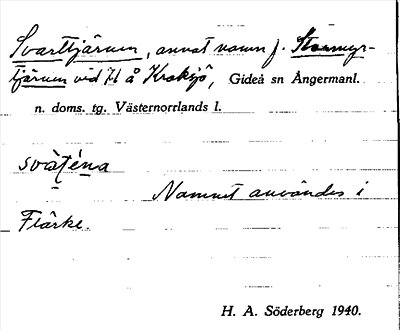 Svarttjärnen, annat namn f. Stormyr-
tjärnen vid H å Kroksjö, Gideå sn Ångermanl.
n. doms. tg. Västernorrlands l.
svàténa
Namnet användes i
Flärke.
H. A. Söderberg 1940.